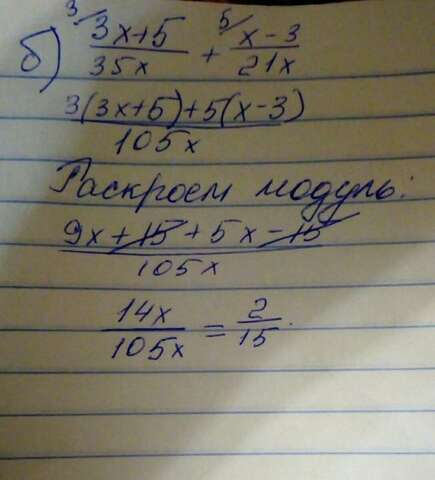 б) 3/ 3x+5/35x + 5/ x-3/21x
3(3x+5)+5(x-3)/105x
Раскроем модуль:
9x+15+5x-15/105x
14x/105x = 2/15.